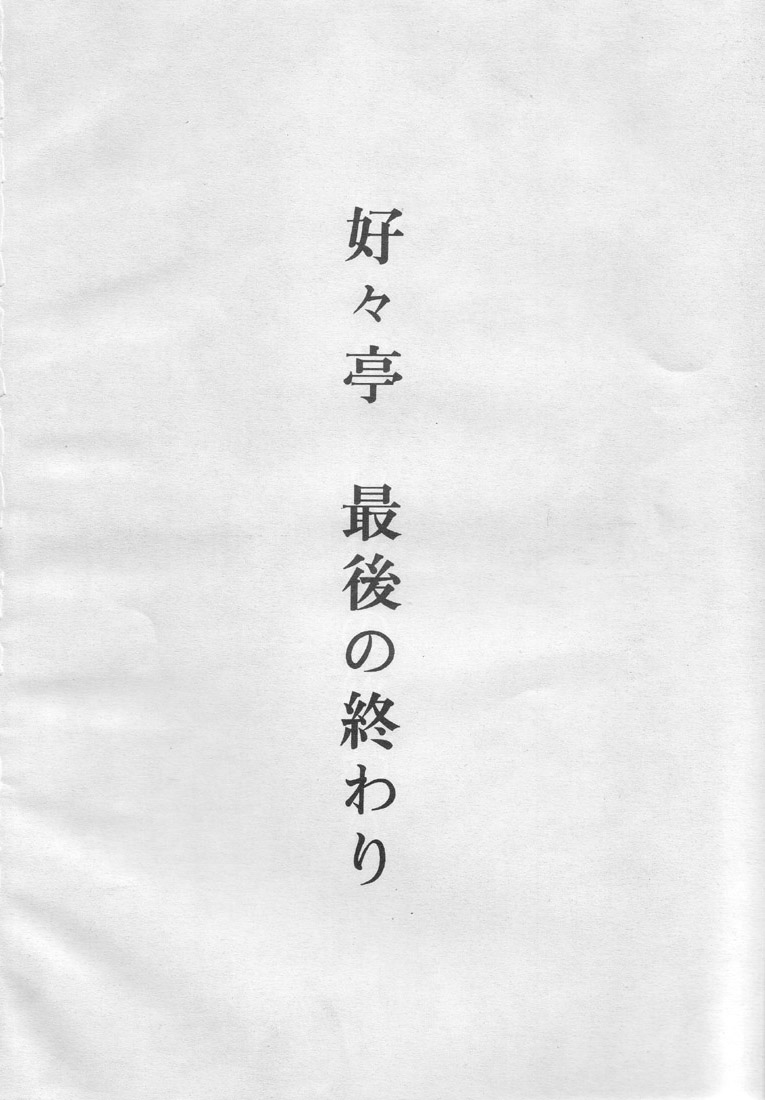 好々亭　最後の終わり